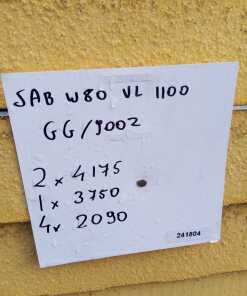 SAB W80 VL 1100
GG/9002
2 x 4175
1 x 3750
4x 2090
241804